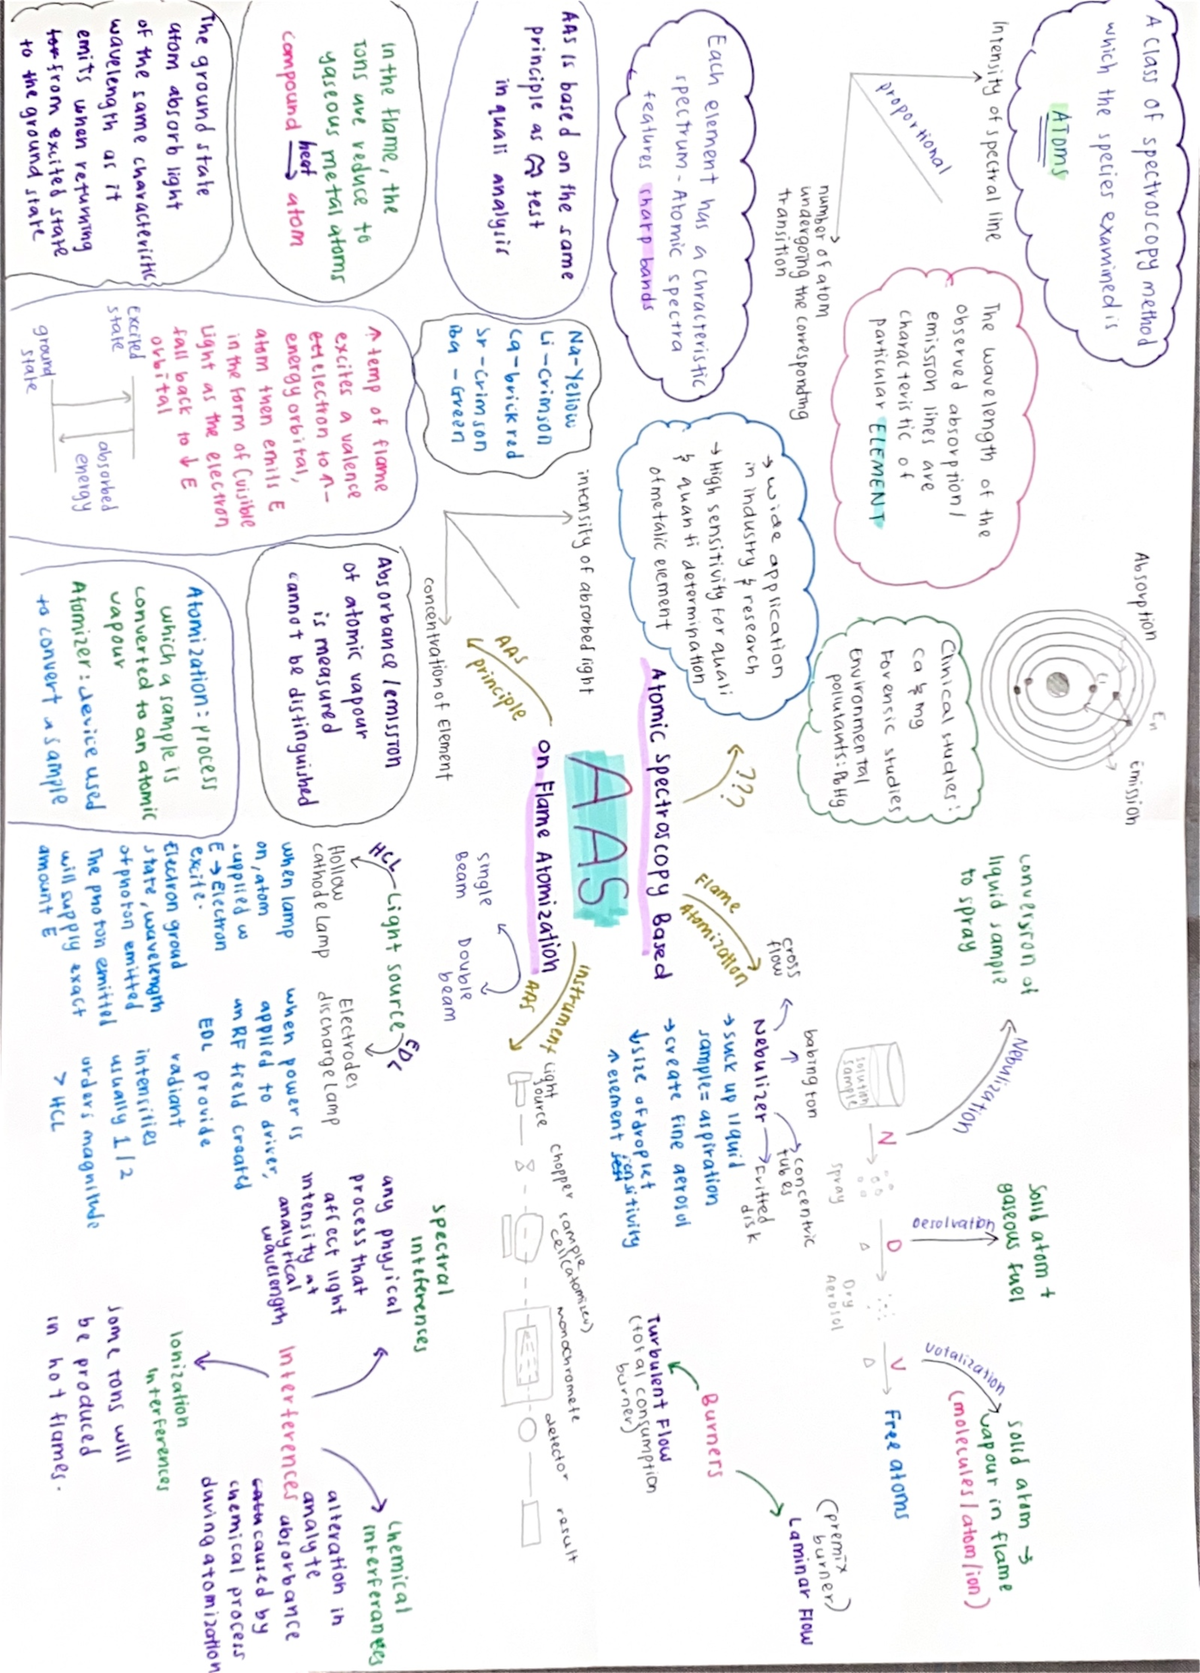 A class of spectroscopy method
which the species examined is
ATOMS
Intensity of spectral line
proportional
number of atom
undergoing the corresponding
transition
The wavelength of the
observed absorption/
emission lines are
characteristic of
particular ELEMENT
Absorption
En
Emission
Clinical studies:
Ca & mg
Forensic studies
Environmental
pollutants: Pb Hg
Each element has a chracteristic
spectrum - Atomic spectra
features sharp bands
→ wide application
in industry & research
→ High sensitivity for quali
& quanti determination
of metalic element
???
AAS is based on the same
principle as test
in quali analysis
Na - Yellow
Li - Crimson
Ca - brick red
Sr - crimson
Ba - Green
intensity of absorbed light
concentration of Element
AAS
principle
In the flame, the
ions are reduce to
gaseous metal atoms
compound heat → atom
↑ temp of flame
excites a valence
electron to ↑-
energy orbital,
atom then emits E
in the form of (visible
light as the electron
fall back to ↓ E
orbital
Excited
state
ground
state
absorbed
energy
Absorbance/emission
of atomic vapour
is measured
cannot be distinguished
The ground state
atom absorb light
of the same characteristic
wavelength as it
emits when returning
from excited state
to the ground state
Atomization: process
which a sample is
converted to an atomic
vapour
Atomizer: device used
to convert a sample
Atomic Spectroscopy Based
AAS
on Flame Atomization
Flame
Atomization
conversion of
liquid sample
to spray
Nebulization
solution
sample
N
spray
Desolvation
D
Dry
Aerosol
Solid atom +
gaseous fuel
Votalization
V
Free atoms
solid atom →
vapour in flame
(molecules/atom/ion)
cross
flow
babington
Nebulizer
concentric
tubes
fritted
disk
→ suck up liquid
sample = aspiration
→ create fine aerosol
↓ size of droplet
↑ element sensitivity
Burners
Turbulent Flow
(total consumption
burner)
(premix
burner)
Laminar Flow
Instrument
AAS
single
Beam
Double
beam
Light
source
chopper
sample
cell(atomizer)
monochromete
detector
result
Light source
HCL
EDL
Hollow
cathode lamp
when lamp
on, atom
supplied w
E → Electron
excite.
Electron groud
state, wavelength
of photon emitted
The photon emitted
will supply exact
amount E
Electrodes
discharge lamp
when power is
applied to driver,
an RF field created
EDL provide
radiant
intensities
usually 1/2
orders magnitude
> HCL
Interferences
spectral
inteferences
any physical
process that
affect light
intensity at
analytical
wavelength
Ionization
interferences
some ions will
be produced
in hot flames.
Chemical
interferances
alteration in
analyte
absorbance
caused by
chemical process
during atomization